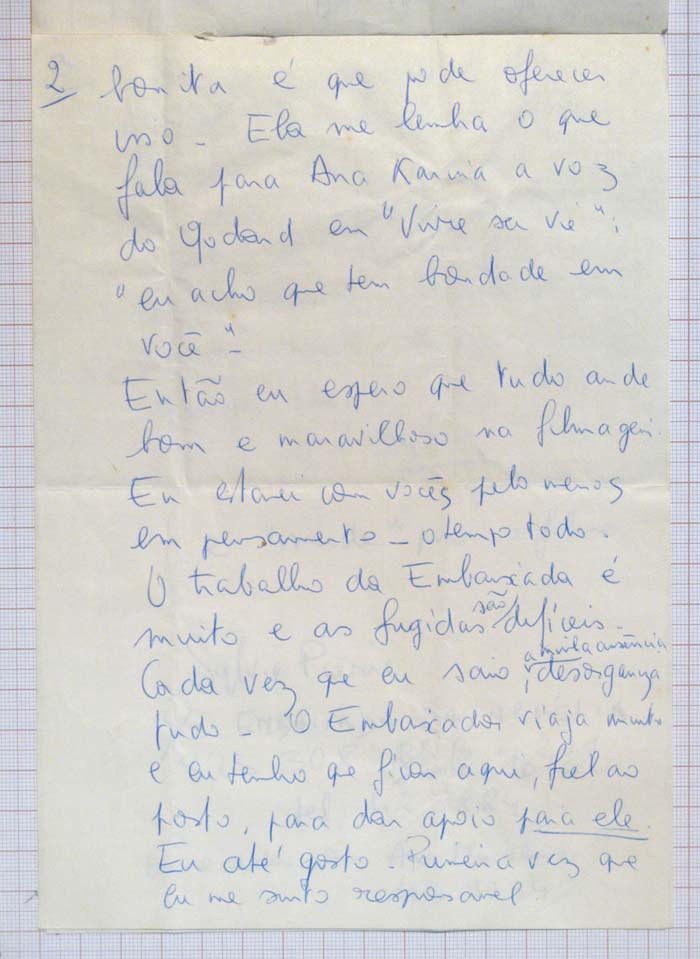 2 bonita é que pode oferecer
isso - Ela me lembra o que
fala para Ana Karina a voz
do Godard em "Vivre sa vie":
"eu acho que tem bondade em
você" -
Então eu espero que tudo ande
bom e maravilhoso na filmagem.
Eu estarei com vocês pelo menos
em pensamento - o tempo todo.
O trabalho da Embaixada é
muito e as fugidas são difíceis -
Cada vez que eu saio, a minha ausência desorganiza
tudo - O Embaixador viaja muito
e eu tenho que ficar aqui, fiel ao
posto, para dar apoio para ele.
Eu até gosto - Primeira vez que
eu me sinto responsavel